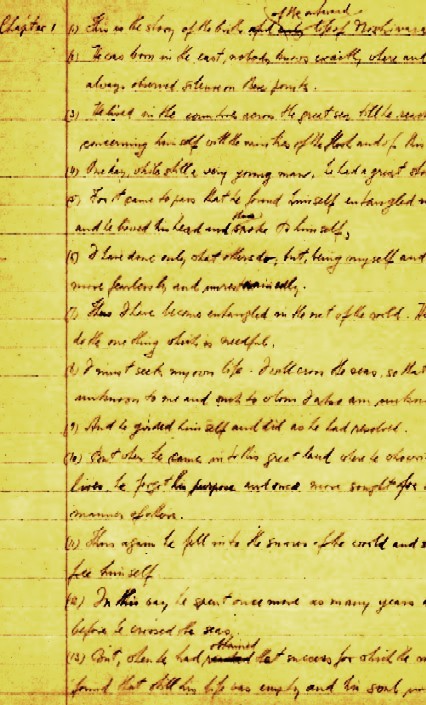 of the outward
Chapter 1 (1) This is the story of the birth and early life of
(2) He was born in the east, nobody knows exactly where and
always observed silence on these points.
(3) He lived in the countries across the great sea till he
concerning himself with the vanities of the flesh and of this
(4) One day, while still a very young man, he had a great
(5) For it came to pass that he found himself entangled
and he bowed his head and spoke to himself,
(6) I have done only what others do, but, being myself and
more fearlessly and unrestrainedly.
(7) Thus I have become entangled in the net of the world.
do the one thing which is needful.
(8) I must seek my own life. I will cross the seas, so that
unknown to me and such to whom I also am
(9) And he girded himself and did as he had resolved.
(10) But when he came into this great land where he
lives, he forgot his purpose and once more sought for
manner of
(11) Thus again he fell into the snares of the world and
free himself.
(12) In this way he spent once more as many years
before he crossed the seas.
attained
(13) But, when he had reached that success for which the
found that still his life was empty and his soul